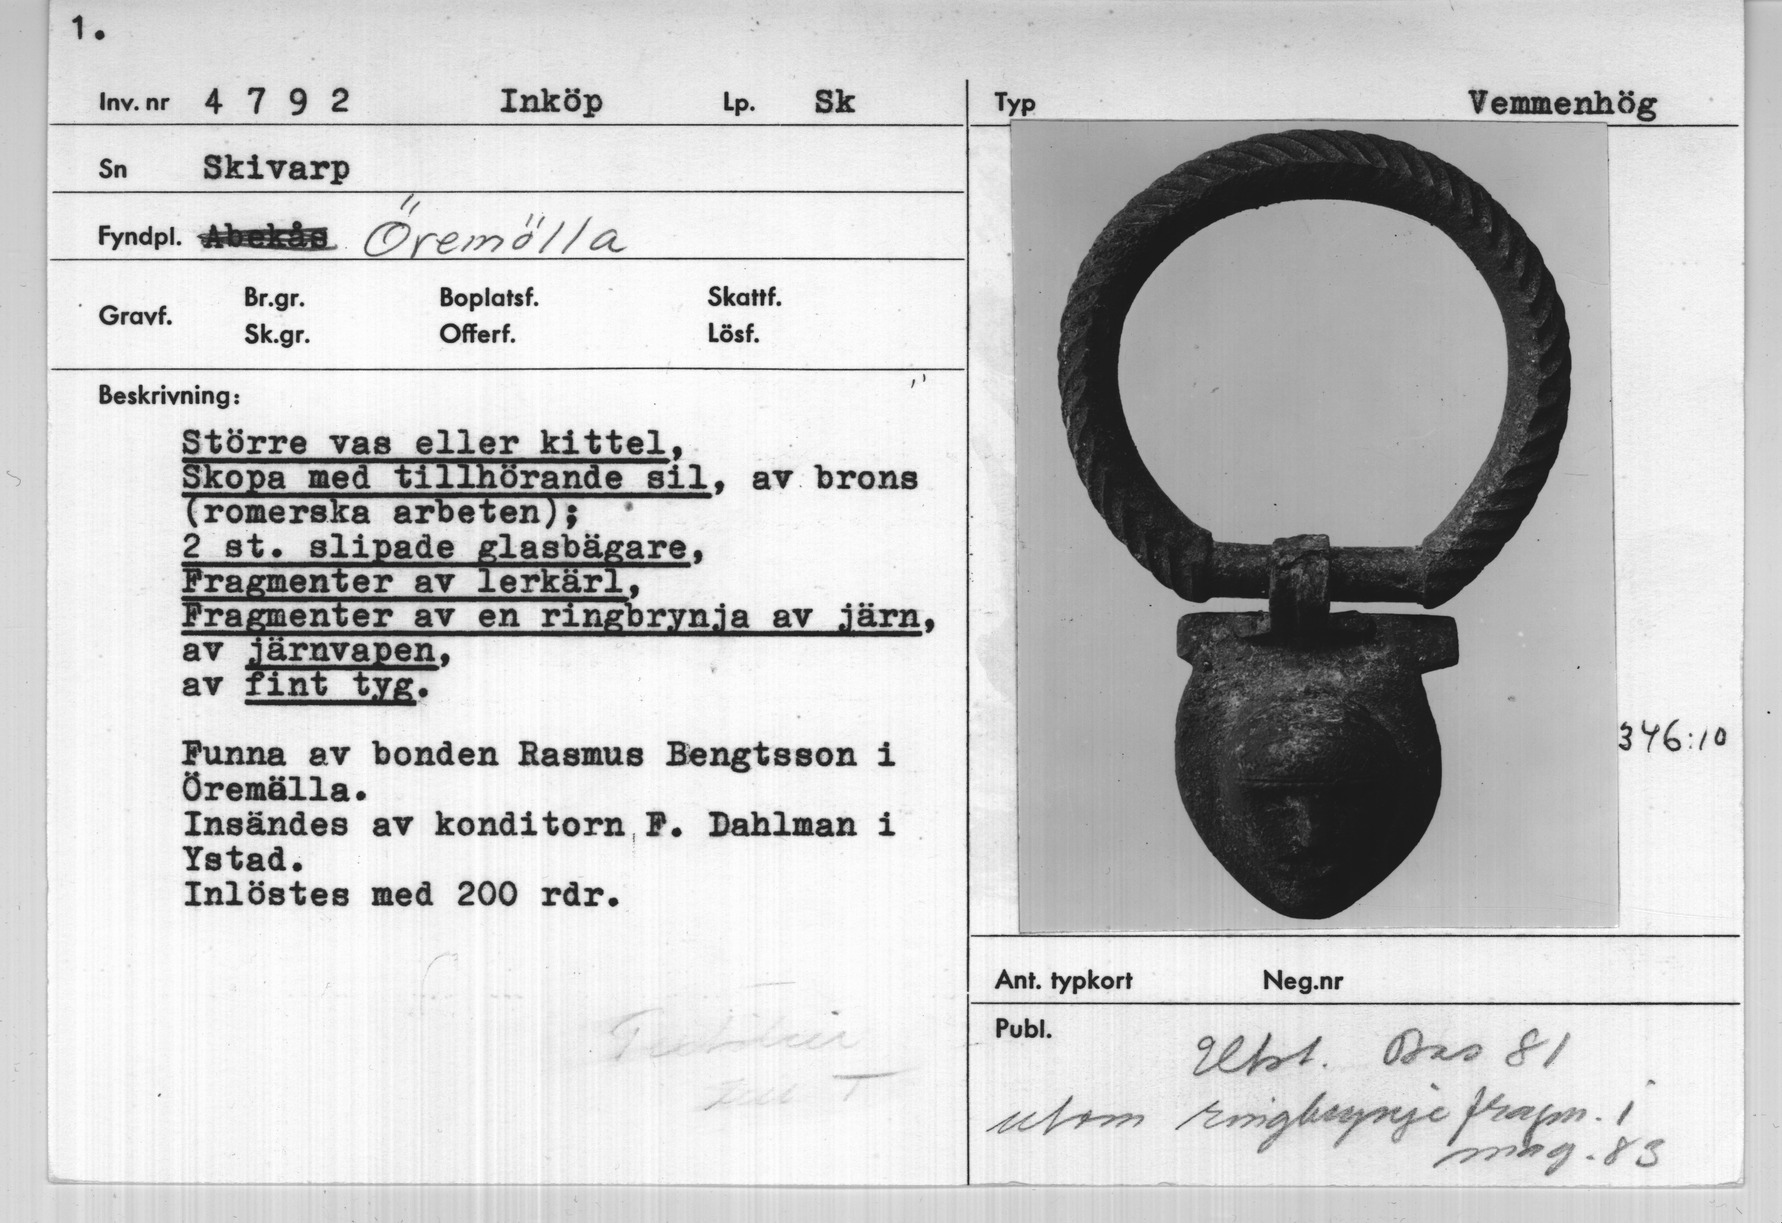 1.
Inv. nr 4 7 9 2 Inköp Lp. Sk
Sn Skivarp
Fyndpl. Abekås Öremölla
Gravf. Br.gr. Boplatsf. Skattf.
Sk.gr. Offerf. Lösf.
Beskrivning:
Större vas eller kittel,
Skopa med tillhörande sil, av brons
(romerska arbeten);
2 st. slipade glasbägare,
Fragmenter av lerkärl,
Fragmenter av en ringbrynja av järn,
av järnvapen,
av fint tyg.
Funna av bonden Rasmus Bengtsson i
Öremälla.
Insändes av konditorn F. Dahlman i
Ystad.
Inlöstes med 200 rdr.
Typ Vemmenhög
346:10
Ant. typkort Neg.nr
Publ.
Utst. Bas 81
utom ringbrynje fragm. i
mag. 83